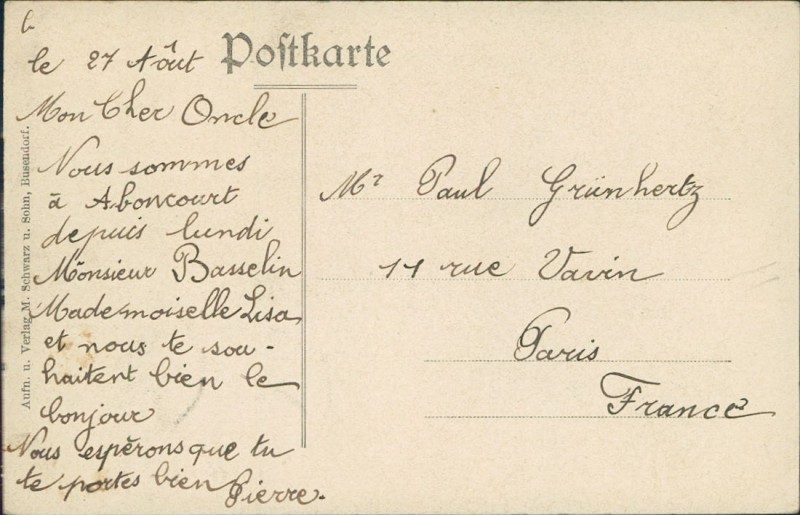 le 27 Aôut
Postkarte
Mon Cher Oncle
Nous sommes
à Aboncourt
depuis lundi
Monsieur Basselin
Mademoiselle Lisa
et nous te sou-
haitent bien le
bonjour
Nous espérons que tu
te portes bien Pierre.
Mr Paul Grünhertz
11 rue Vavin
Paris
France
Aufn. u. Verlag M. Schwarz u. Sohn, Busendorf.